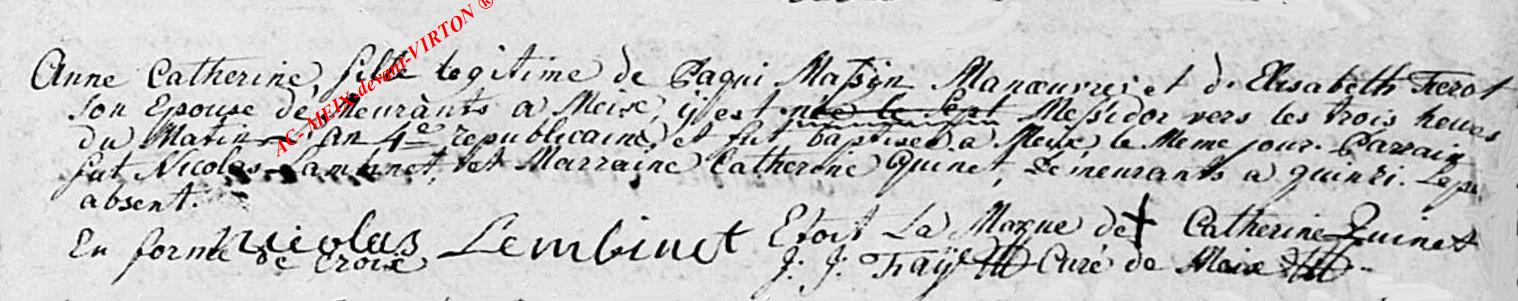 AC- MEIX-devant-VIRTON ®
Anne Catherine, fille legitime de Paqui Massin Manoeuvre, et d'Elisabeth Ferot
Son Epouse demeurants a Meix, y est née le Sept Messidor vers les trois heures
du Matin an 4e republicaine, et fut baptisée a Meix le Meme jour. Parrain
fut Nicolas Lambinet, et Marraine Catherine Quinet, Demeurants a
absent.
Nicolas Lembinet Etoit La Marque de + Catherine Quinet
En forme de Croix J. J. Curé de Meix